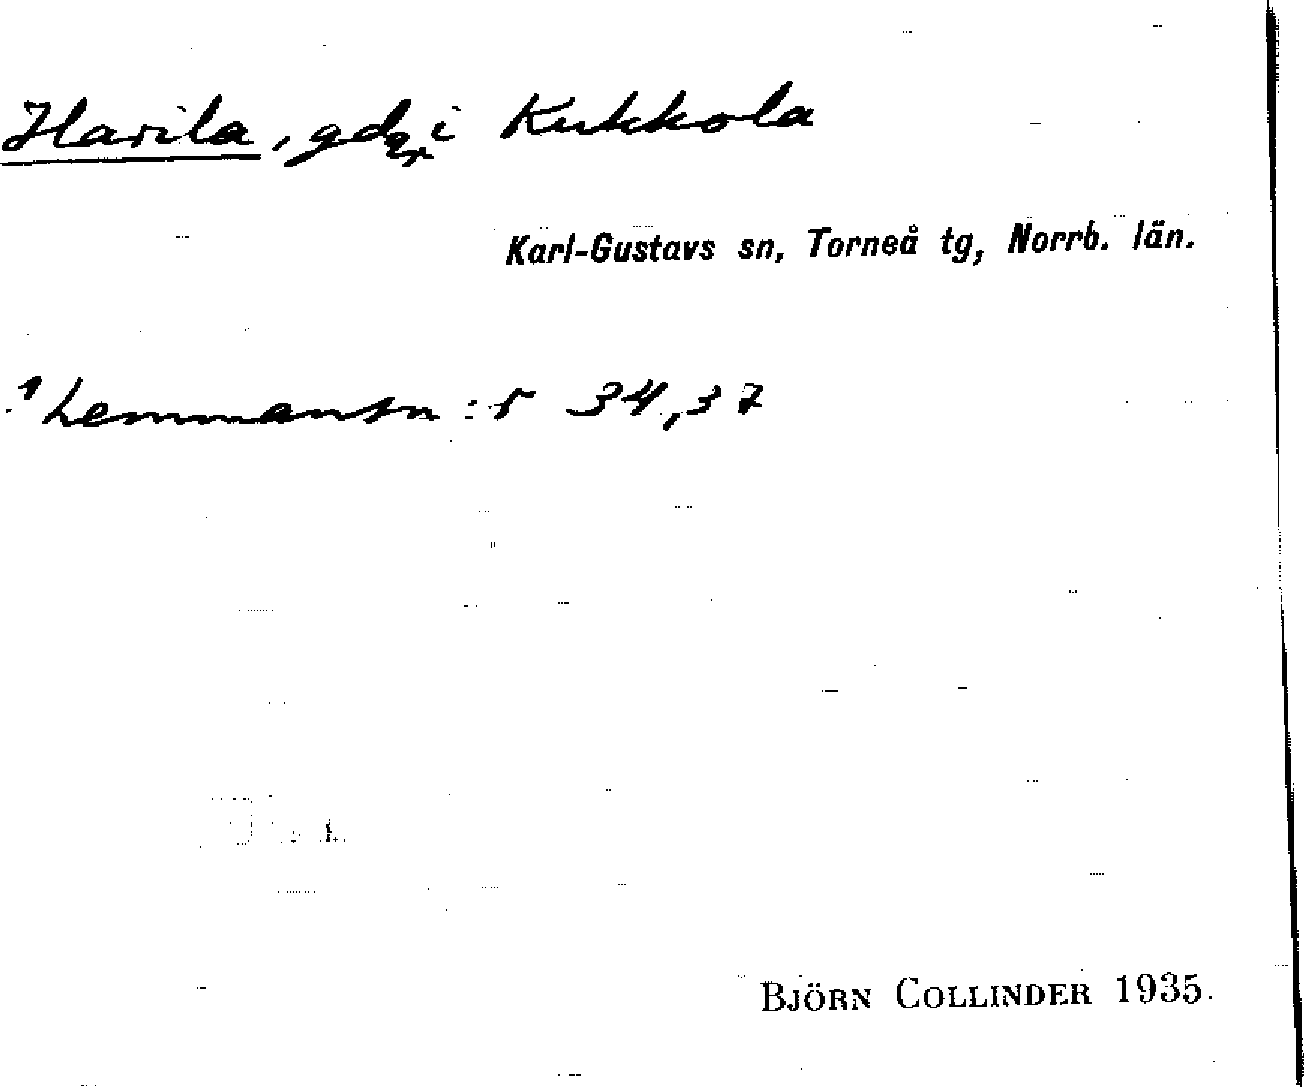 Havila, gdr i Kukkola
Karl-Gustavs sn, Torneå tg, Norrb. län.
1 Lemmansn : r 34,37
BJÖRN COLLINDER 1935.